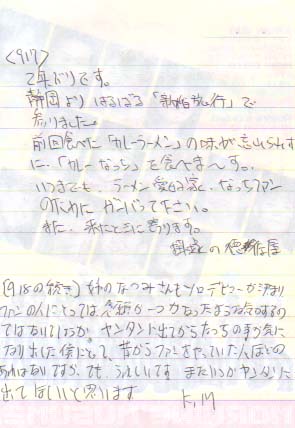 〈9/17〉
2年ぶりです。
静岡よりはるばる「新婚旅行」で
参りました。
前回食べた「カレーラーメン」の味が忘れられず
に、「カレーなっち」を食べまーす。
いつまでも、ラーメン愛好家、なっちファン
のためにガンバって下さい。
また、来たときに寄ります。
の
(9/18の続き) 妹のなつみさんもソロデビューが決まり
ファンの人にとっては が一つかなったような
ではないでしょうか。ヤンタンに出てからなっちの事が気に
なり出した僕にとって、昔からファンをやっていた人ほどの
ありませんが、でも、うれしいです。またいつかヤンタンに
出てほしいと思います